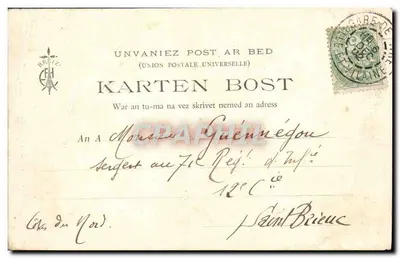 UNVANIEZ POST AR BED
(UNION POSTALE UNIVERSELLE)
KARTEN BOST
War an tu-ma na vez skrivet nemed an adress
An A Monsieur Guénnégou
sergent au 71 Rég! d'Inf ie
12e Cie
Côtes du Nord. Saint Brieuc